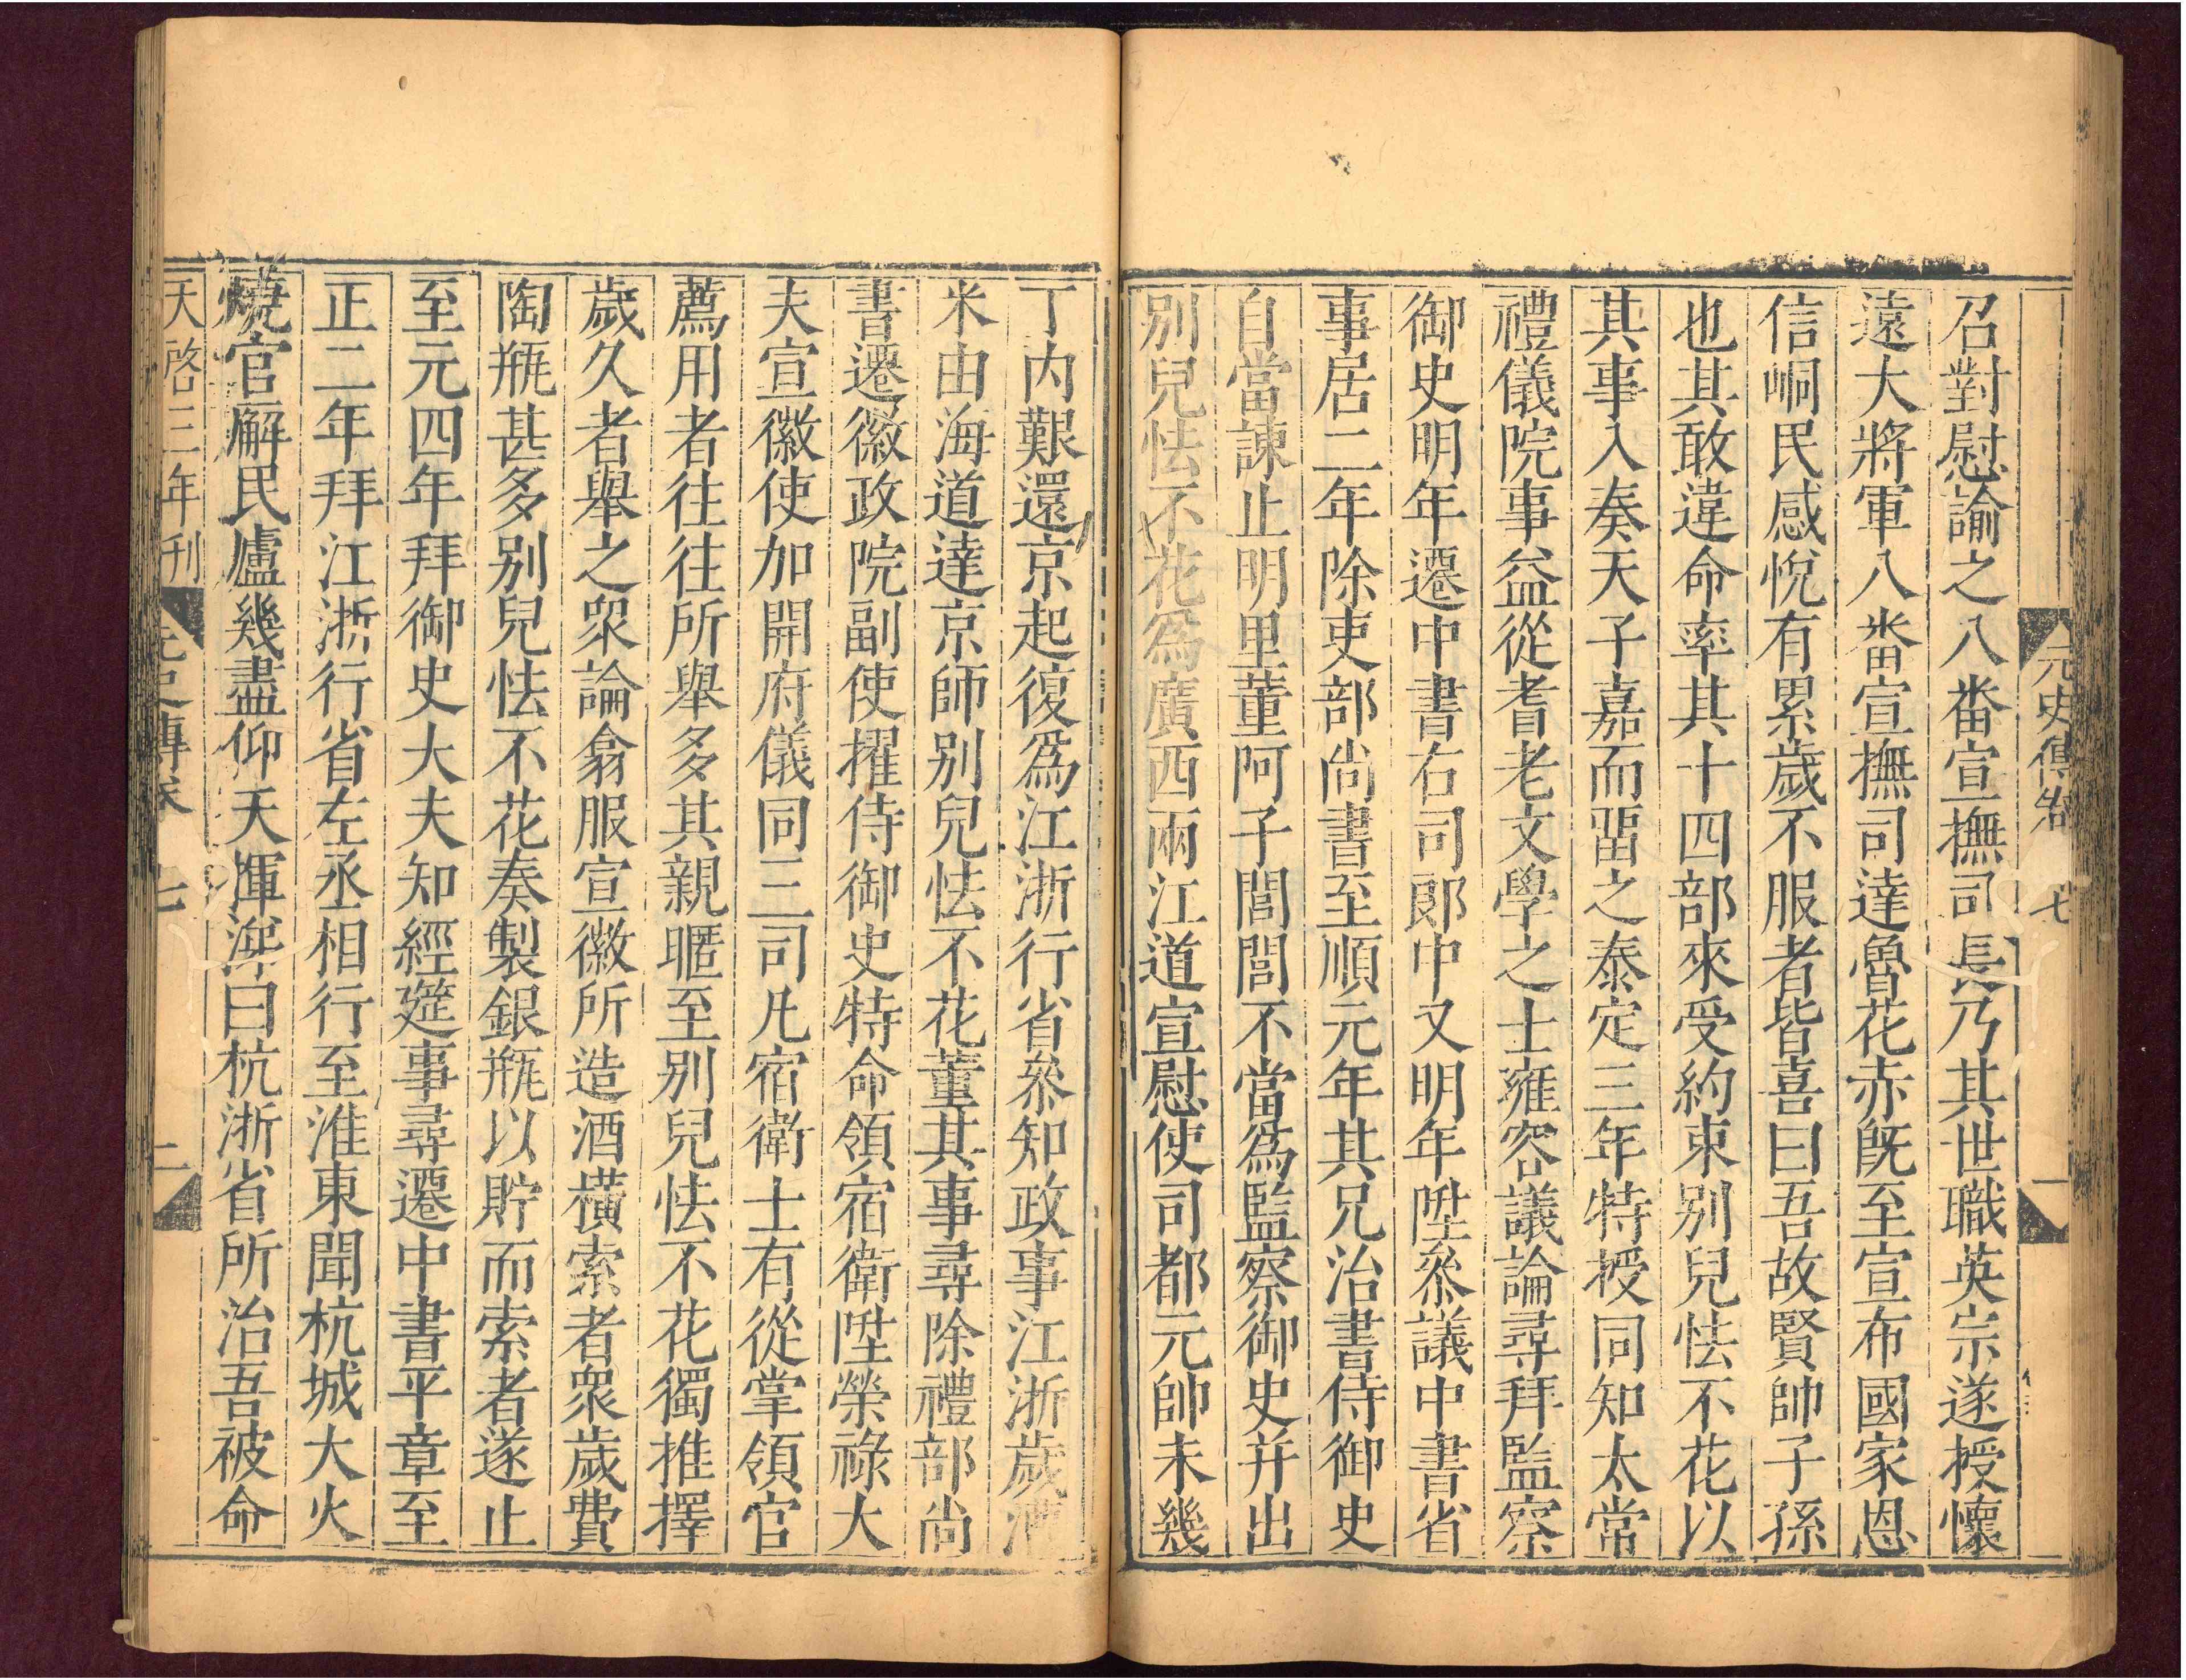 元史傳卷 七 一
召對慰諭之八番宣撫司長乃其世職英宗遂授懷
遠大將軍八番宣撫司達魯花赤旣至宣布國家恩
信峒民感悅有累歲不服者皆喜曰吾故賢帥子孫
也其敢違命率其十四部來受約束別兒怯不花以
其事入奏天子嘉而畱之泰定三年特授同知太常
禮儀院事益從耆老文學之士雍容議論尋拜監察
御史明年遷中書右司郞中又明年陞叅議中書省
事居二年除吏部尚書至順元年其兄治書侍御史
自當諫止明里董阿子閭閭不當爲監察御史并出
別兒怯不花爲廣西兩江道宣慰使司都元帥未幾
丁內艱還京起復爲江浙行省叅知政事江浙歲漕
米由海道達京師別兒怯不花董其事尋除禮部尚
書遷徽政院副使擢侍御史特命領宿衛陞榮祿大
夫宣徽使加開府儀同三司凡宿衛士有從掌領官
薦用者往往所舉多其親暱至別兒怯不花獨推擇
歲久者舉之眾論翕服宣徽所造酒橫索者衆歲費
陶瓶甚多別兒怯不花奏製銀瓶以貯而索者遂止
至元四年拜御史大夫知經筵事尋遷中書平章至
正二年拜江浙行省左丞相行至淮東聞杭城大火
燒官廨民廬幾盡仰天揮涕曰杭浙省所治吾被命
天啓三年刊 元史傳卷 七 二